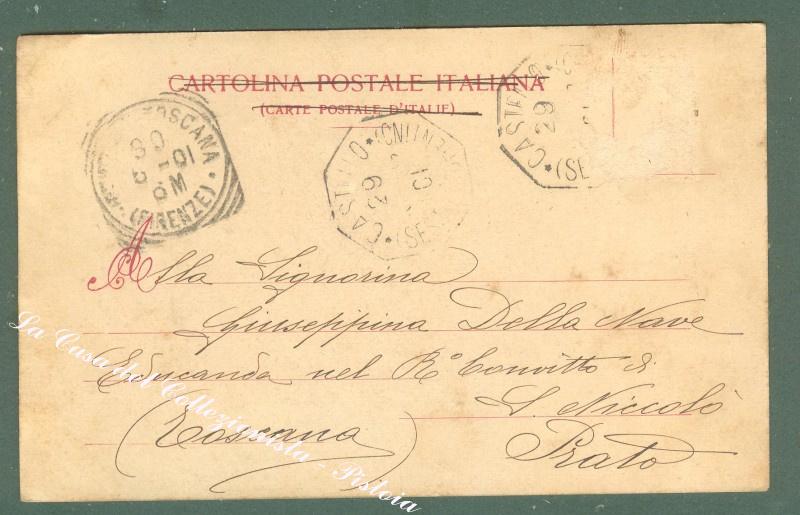 CARTOLINA POSTALE ITALIANA
(CARTE POSTALE D'ITALIE)
TOSCANA
30
5-01
6 M
(FIRENZE)
CASTELLO
29
CASTELLO
29
(SE
Alla Signorina
Giuseppina Della Nave
Educanda nel R° Convitto di
S. Niccolò
(Toscana) Prato
La Casa del Collezionista - Pistoia